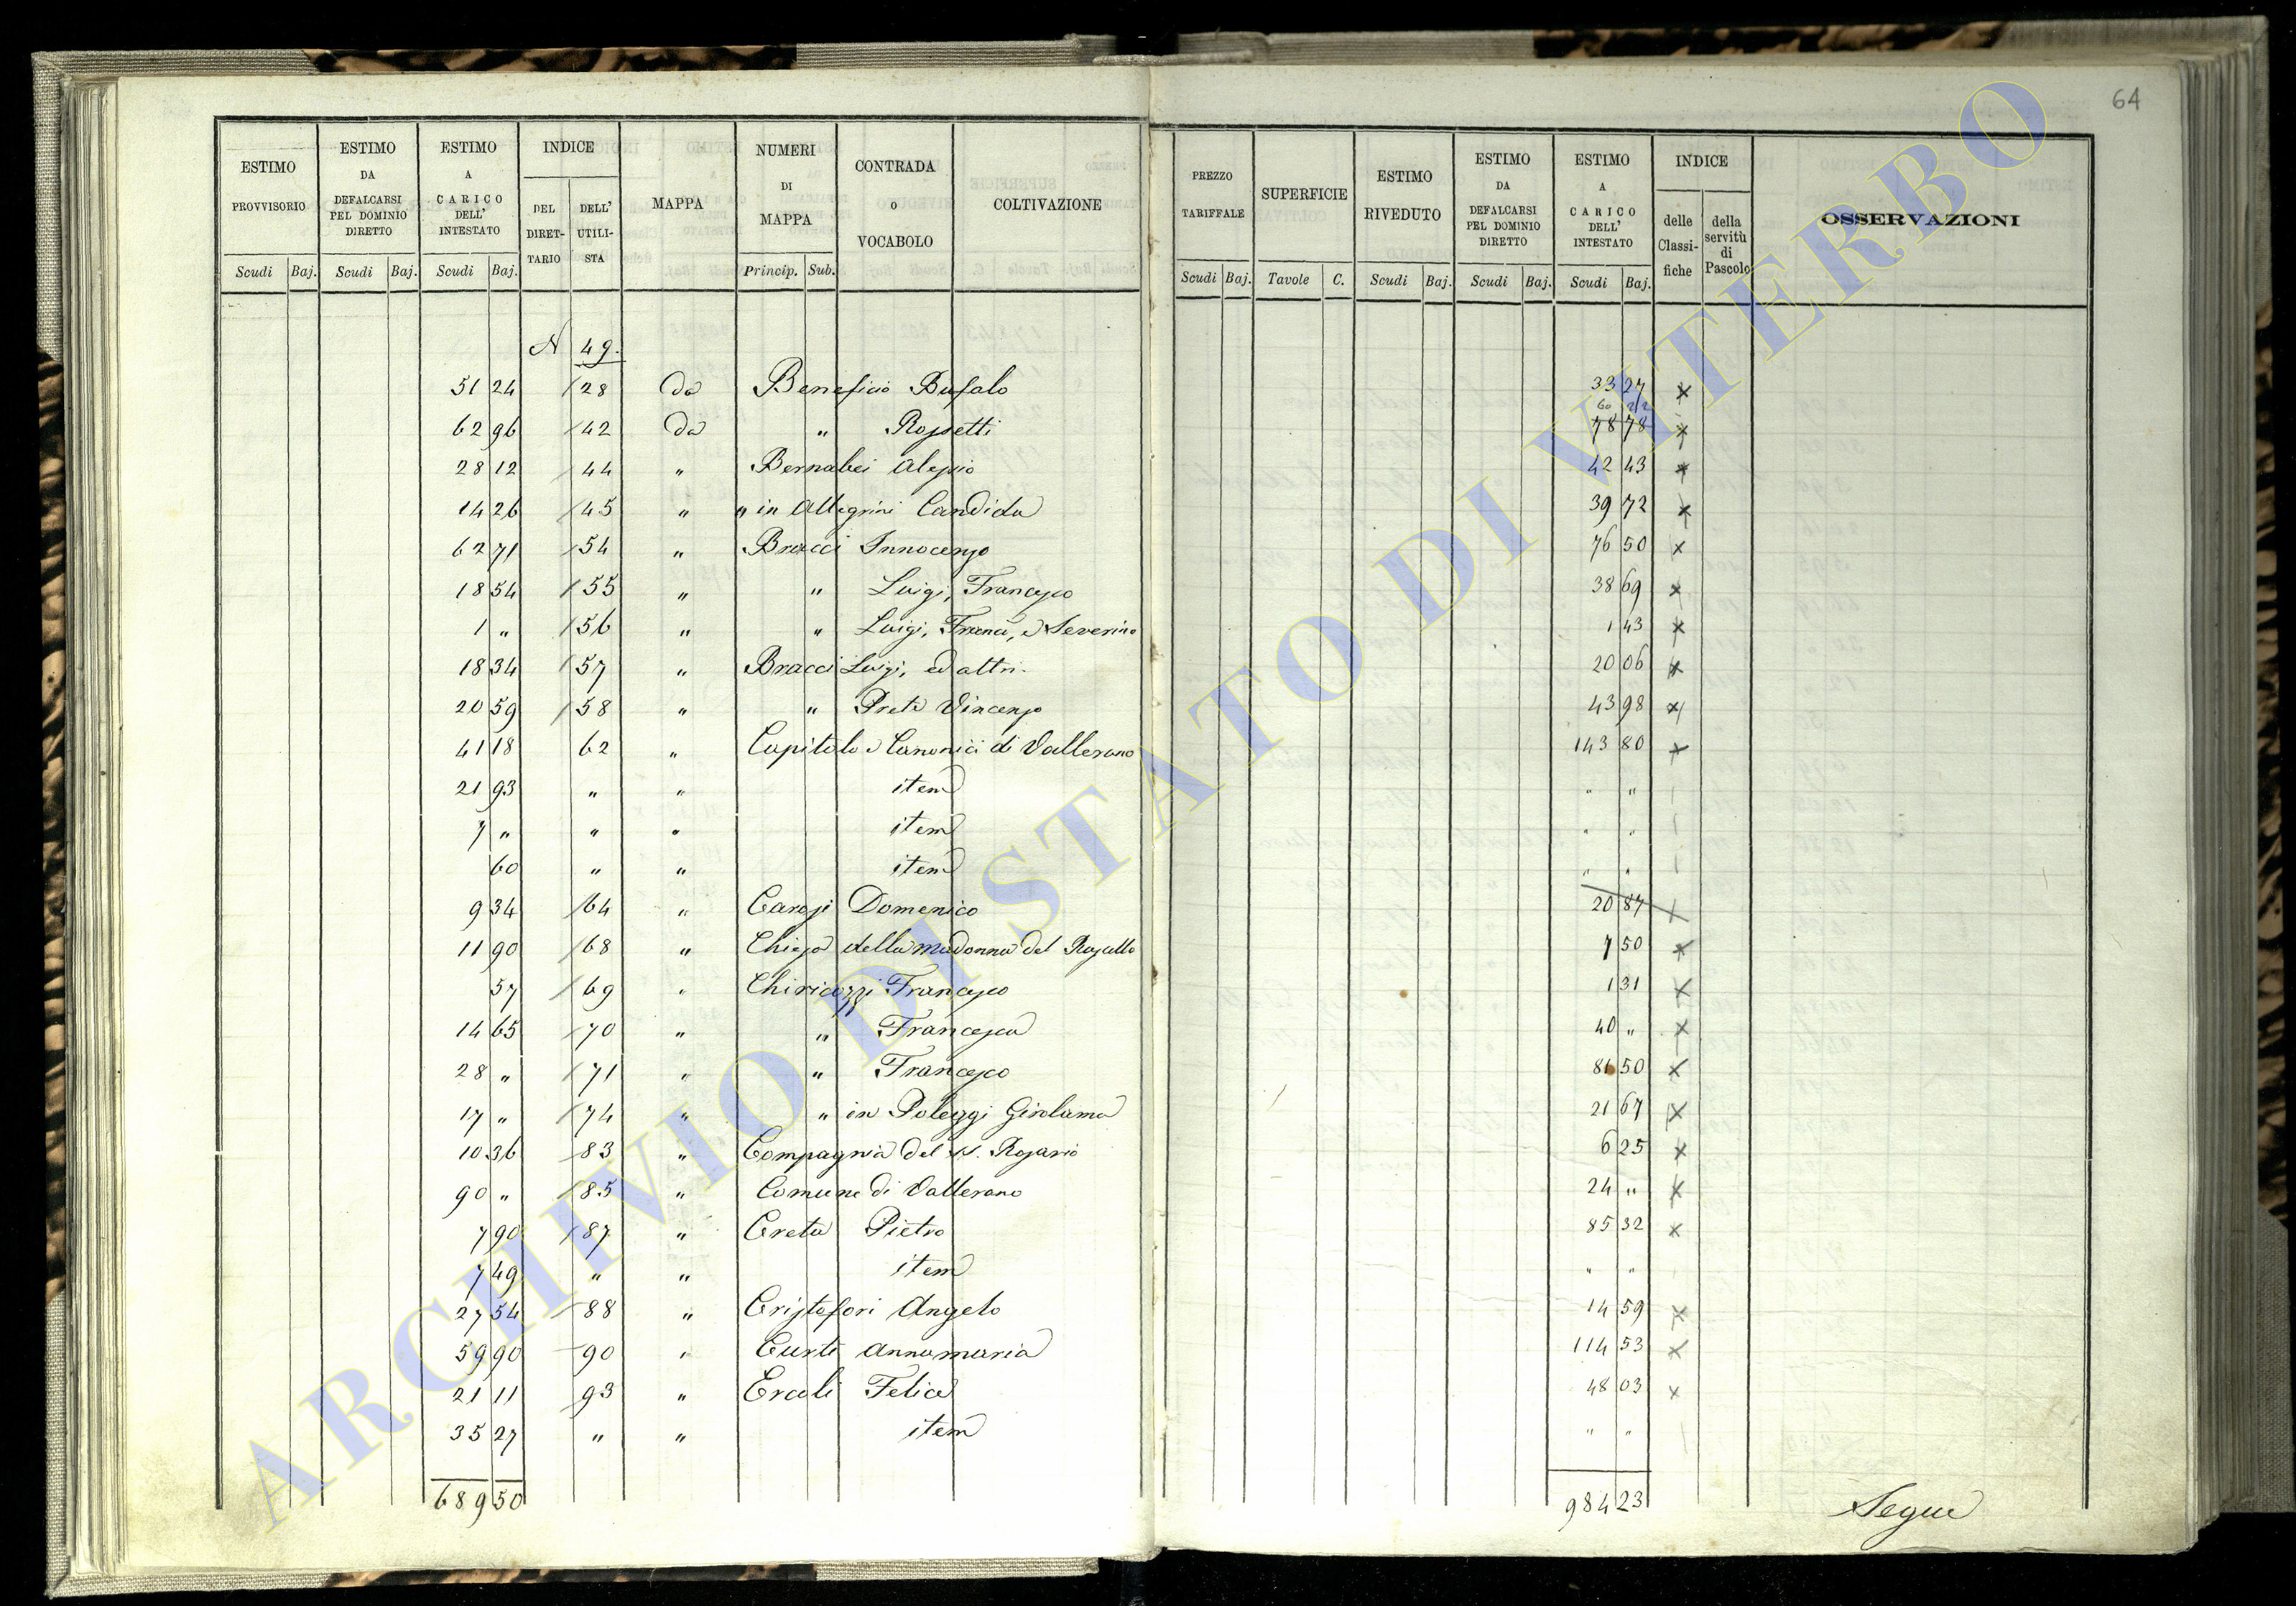 64
ESTIMO PROVVISORIO | ESTIMO DA DEFALCARSI PEL DOMINIO DIRETTO | ESTIMO A CARICO DELL' INTESTATO | INDICE DEL DIRET- TARIO | DELL' UTILI- STA | MAPPA | NUMERI DI MAPPA | CONTRADA o VOCABOLO | COLTIVAZIONE | PREZZO TARIFFALE | SUPERFICIE | ESTIMO RIVEDUTO | ESTIMO DA DEFALCARSI PEL DOMINIO DIRETTO | ESTIMO A CARICO DELL' INTESTATO | INDICE delle Classi- fiche | della servitù di Pascolo | OSSERVAZIONI
Scudi Baj. Scudi Baj. Scudi Baj. Princip. Sub. Scudi Baj. Tavole C. Scudi Baj. Scudi Baj. Scudi Baj.
N 49.
51 24 / 28 Da Beneficio Bufalo 33 27 x
60 22
62 96 / 42 Da " Rossetti 78 78 x
28 12 / 44 " Bernabei Alessio 42 43 x
14 26 / 45 " " in Allegrini Candida 39 72 x
62 71 / 54 " Bracci Innocenzo 76 50 x
18 54 / 55 " " Luigi, Francesco 38 69 x
1 " / 56 " " Luigi, Franc, e Severino 1 43 x
18 34 / 57 " Bracci Luigi, ed altri. 20 06 x
20 59 / 58 " " Prete Vincenzo 43 98 x
41 18 62 " Capitolo e Canonici di Vallerano 143 80 x
21 93 " " item " "
7 " " " item " "
60 " " item " "
9 34 / 64 " Carosi Domenico 20 87 x
11 90 / 68 " Chiesa della Madonna del Ruscello 7 50 x
57 / 69 " Chiricozzi Francesco 1 31 x
14 65 / 70 " " Francesca 40 " x
28 " / 71 " " Francesco 81 50 x
17 " / 74 " " in Poleggi Girolama 21 67 x
10 36 / 83 " Compagnia del SS. Rosario 6 25 x
90 " / 85 " Comune di Vallerano 24 " x
7 90 / 87 " Creta Pietro 85 32 x
7 49 " " item " "
27 54 / 88 " Cristofori Angelo 14 59 x
59 90 90 " Curti Annamaria 114 53 x
21 11 / 93 " Ercoli Felice 48 03 x
35 27 " " item " "
689 50 984 23 Segue
ARCHIVIO DI STATO DI VITERBO